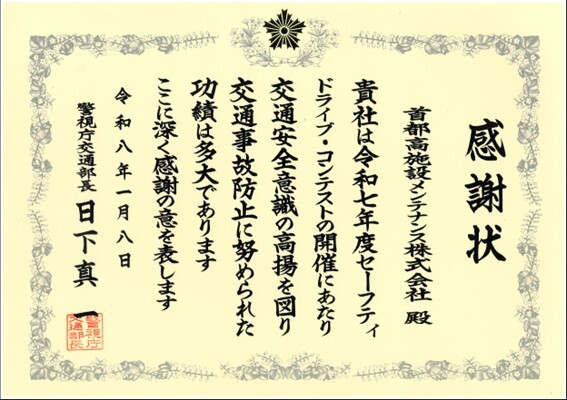 感謝状
首都高施設メンテナンス株式会社 殿
貴社は令和七年度セーフティ
ドライブ・コンテストの開催にあたり
交通安全意識の高揚を図り
交通事故防止に努められた
功績は多大であります
ここに深く感謝の意を表します
令和八年一月八日
警視庁交通部長 日下真一
警視庁
交通部長